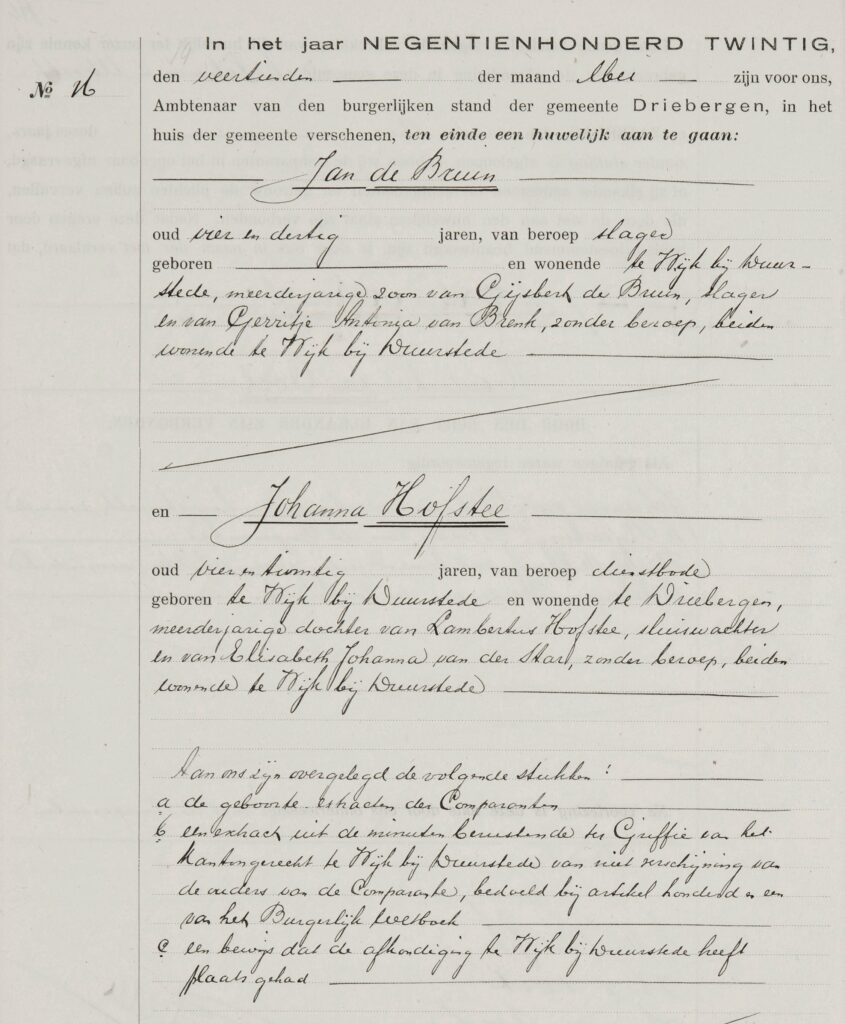 In het jaar NEGENTIENHONDERD TWINTIG,
den veertienden der maand Mei zijn voor ons,
Nº 16
Ambtenaar van den burgerlijken stand der gemeente Driebergen, in het
huis der gemeente verschenen, ten einde een huwelijk aan te gaan:
Jan de Bruin
oud vier en dertig jaren, van beroep slager
geboren en wonende te Wijk bij Duur-
stede, meerderjarige zoon van Gijsbert de Bruin, slager
en van Gerritje Antonia van Brenk, zonder beroep, beiden
wonende te Wijk bij Duurstede
en Johanna Hofstee
oud vier en twintig jaren, van beroep dienstbode
geboren te Wijk bij Duurstede en wonende te Driebergen,
meerderjarige dochter van Lambertus Hofstee, sluiswachter
en van Elisabeth Johanna van der Star, zonder beroep, beiden
wonende te Wijk bij Duurstede
Aan ons zijn overgelegd de volgende stukken:
a de geboorte-extracten der Comparanten
b een extract uit de minuten berustende ter Griffie van het
Kantongerecht te Wijk bij Duurstede van niet verschijning van
de ouders van de Comparante, bedoeld bij artikel honderd en een
van het Burgerlijk Wetboek
c een bewijs dat de afkondiging te Wijk bij Duurstede heeft
plaats gehad